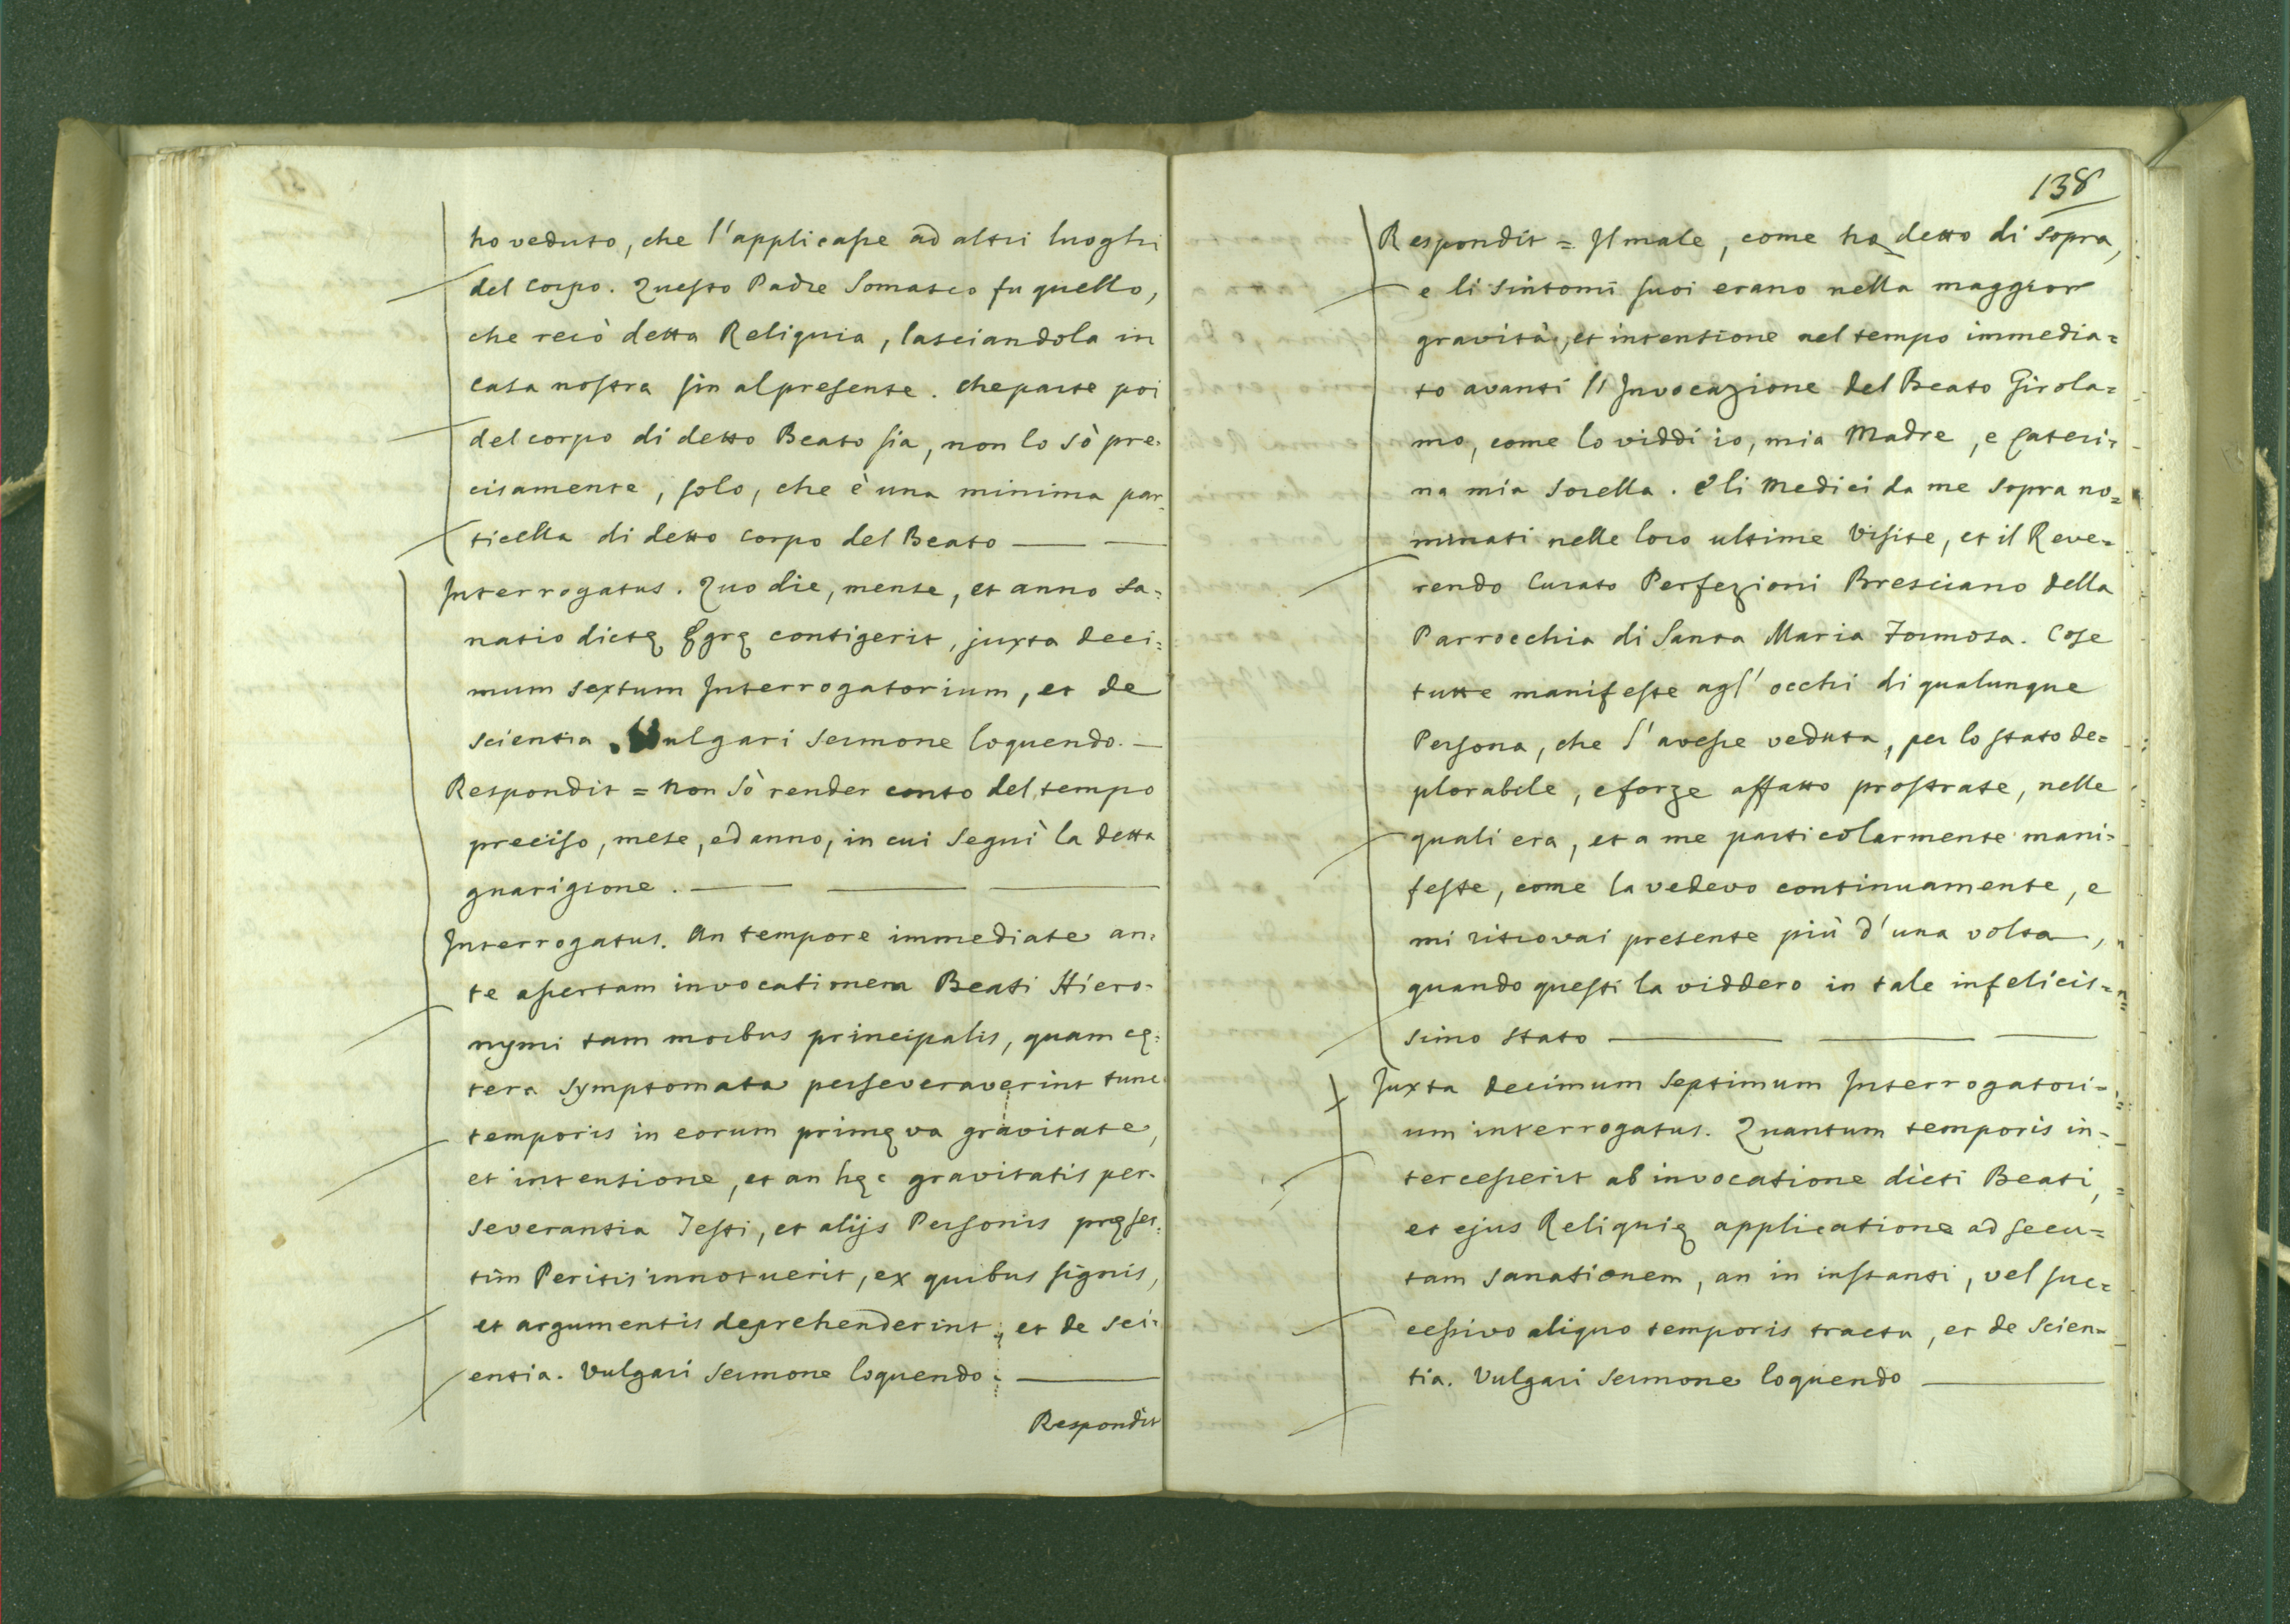 ho veduto, che l'applicasse ad altri luoghi
del corpo. Questo Padre Somasco fu quello,
che recò detta Reliquia, lasciandola in
casa nostra sin al presente. che parte poi
del corpo di detto Beato sia, non lo sò pre-
cisamente, solo, che è una minima par-
ticella di detto corpo del Beato
Interrogatus. Quo die, mense, et anno sa=
natio dictę Ęgrę contigerit, juxta deci=
mum sextum Interrogatorium, et de
scientia. Vulgari sermone loquendo.
Respondit = Non sò render conto del tempo
preciso, mese, ed anno, in cui seguì la detta
guarigione.
Interrogatus. An tempore immediate an=
te assertam invocationem Beati Hiero-
nymi tam morbus principalis, quam cę=
tera symptomata perseveraverint tunc
temporis in eorum primęva gravitate,
et intensione, et an hęc gravitatis per-
severantia Testi, et alijs Personis pręser=
tim Peritis innotuerit, ex quibus signis,
et argumentis deprehenderint; et de sci=
entia. Vulgari sermone loquendo.
Respondit
138
Respondit = Il male, come ho detto di sopra,
e li sintomi suoi erano nella maggior
gravità, et intensione nel tempo immedia=
to avanti l'Invocazione del Beato Girola=
mo, come lo viddi io, mia Madre, e Cateri=
na mia sorella. E li Medici da me sopra no=
minati nelle loro ultime visite, et il Reve=
rendo Curato Perfezioni Bresciano della
Parrocchia di Santa Maria Formosa. Cose
tutte manifeste agl'occhi di qualunque
Persona, che l'avesse veduta, per lo stato de=
plorabile, e forze affatto prostrate, nelle
quali era, et a me particolarmente mani=
feste, come la vedevo continuamente, e
mi ritrovai presente più d'una volta,
quando questi la viddero in tale infelicis=
simo stato
Juxta decimum septimum Interrogatori=
um interrogatus. Quantum temporis in-
tercesserit ab invocatione dicti Beati,
et ejus Reliquię applicatione ad secu=
tam sanationem, an in instanti, vel suc=
cessivo aliquo temporis tractu, et de scien=
tia. Vulgari sermone loquendo